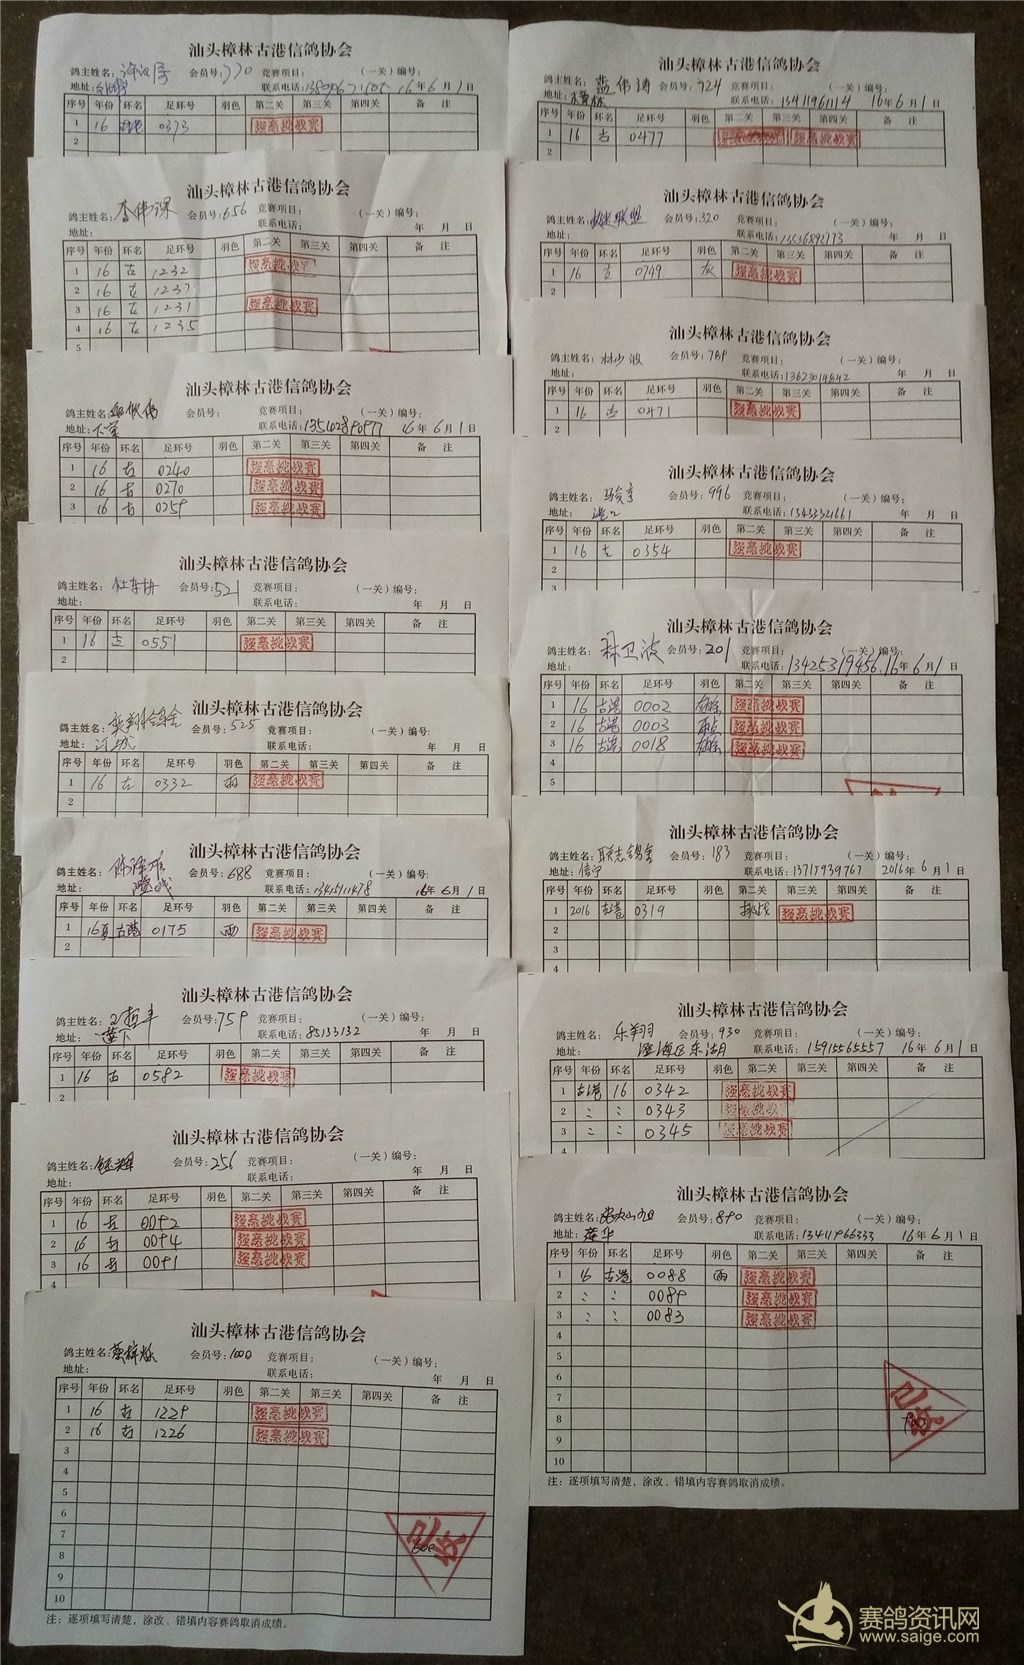 汕头樟林古港信鸽协会
鸽主姓名: 会员号:770 竞赛项目: (一关)编号:
地址: 联系电话: 16年6月1日
序号 年份 环名 足环号 羽色 第二关 第三关 第四关 备注
1 16 0373 强豪挑战赛
2
汕头樟林古港信鸽协会
鸽主姓名: 会员号:656 竞赛项目: (一关)编号:
地址: 联系电话: 年 月 日
序号 年份 环名 足环号 羽色 第二关 第三关 第四关 备注
1 16 古 1232 强豪挑战赛
2 16 古 1237
3 16 古 1231 强豪挑战赛
4 16 古 1235
5
汕头樟林古港信鸽协会
鸽主姓名: 会员号: 竞赛项目: (一关)编号:
地址: 联系电话: 16年6月1日
序号 年份 环名 足环号 羽色 第二关 第三关 第四关 备注
1 16 古 0240 强豪挑战赛
2 16 古 0270 强豪挑战赛
3 16 古 0259 强豪挑战赛
汕头樟林古港信鸽协会
鸽主姓名: 会员号:521 竞赛项目: (一关)编号:
地址: 联系电话: 年 月 日
序号 年份 环名 足环号 羽色 第二关 第三关 第四关 备注
1 16 古 0551 强豪挑战赛
2
汕头樟林古港信鸽协会
鸽主姓名: 会员号:525 竞赛项目: (一关)编号:
地址: 联系电话: 年 月 日
序号 年份 环名 足环号 羽色 第二关 第三关 第四关 备注
1 16 古 0332 雨 强豪挑战赛
2
汕头樟林古港信鸽协会
鸽主姓名: 会员号:688 竞赛项目: (一关)编号:
地址: 联系电话: 16年6月1日
序号 年份 环名 足环号 羽色 第二关 第三关 第四关 备注
1 16 古港 0175 雨 强豪挑战赛
2
汕头樟林古港信鸽协会
鸽主姓名: 会员号:759 竞赛项目: (一关)编号:
地址:莲下 联系电话:85133132 年 月 日
序号 年份 环名 足环号 羽色 第二关 第三关 第四关 备注
1 16 古 0582 强豪挑战赛
汕头樟林古港信鸽协会
鸽主姓名: 会员号:256 竞赛项目: (一关)编号:
地址: 联系电话: 年 月 日
序号 年份 环名 足环号 羽色 第二关 第三关 第四关 备注
1 16 古 0092 强豪挑战赛
2 16 古 0094 强豪挑战赛
3 16 古 0091 强豪挑战赛
4
汕头樟林古港信鸽协会
鸽主姓名: 会员号:1000 竞赛项目: (一关)编号:
地址: 联系电话: 年 月 日
序号 年份 环名 足环号 羽色 第二关 第三关 第四关 备注
1 16 古 1229 强豪挑战赛
2 16 古 1226 强豪挑战赛
3
4
5
6
7
8
9
10
已收
注:逐项填写清楚,涂改、错填内容赛鸽取消成绩。
汕头樟林古港信鸽协会
鸽主姓名:蓝伟涛 会员号:724 竞赛项目: (一关)编号:
地址: 联系电话:13411961114 16年6月1日
序号 年份 环名 足环号 羽色 第二关 第三关 第四关 备注
1 16 古 0477 强豪挑战赛
2
汕头樟林古港信鸽协会
鸽主姓名: 会员号:320 竞赛项目: (一关)编号:
地址: 联系电话: 年 月 日
序号 年份 环名 足环号 羽色 第二关 第三关 第四关 备注
1 16 古 0749 灰 强豪挑战赛
2
汕头樟林古港信鸽协会
鸽主姓名:林少波 会员号:789 竞赛项目: (一关)编号:
地址: 联系电话:13623014842 年 月 日
序号 年份 环名 足环号 羽色 第二关 第三关 第四关 备注
1 16 古 0471 强豪挑战赛
2
汕头樟林古港信鸽协会
鸽主姓名: 会员号:996 竞赛项目: (一关)编号:
地址: 联系电话:13433321661 年 月 日
序号 年份 环名 足环号 羽色 第二关 第三关 第四关 备注
1 16 古 0354 强豪挑战赛
2
3
汕头樟林古港信鸽协会
鸽主姓名:林卫波 会员号:201 竞赛项目: (一关)编号:
地址: 联系电话:13425319456 16年6月1日
序号 年份 环名 足环号 羽色 第二关 第三关 第四关 备注
1 16 古港 0002 强豪挑战赛
2 16 古港 0003 雨点 强豪挑战赛
3 16 古港 0018 强豪挑战赛
4
5
汕头樟林古港信鸽协会
鸽主姓名:联志鸽舍 会员号:183 竞赛项目: (一关)编号:
地址:信宁 联系电话:13715939767 2016年6月1日
序号 年份 环名 足环号 羽色 第二关 第三关 第四关 备注
1 2016 古港 0319 挑战 强豪挑战赛
2
3
4
汕头樟林古港信鸽协会
鸽主姓名:乐翔 会员号:930 竞赛项目: (一关)编号:
地址:澄海区东湖 联系电话:15915565557 16年6月1日
序号 年份 环名 足环号 羽色 第二关 第三关 第四关 备注
1 古港 16 0342 强豪挑战赛
2 : : 0343 强豪挑战赛
3 : : 0345 强豪挑战赛
4
汕头樟林古港信鸽协会
鸽主姓名: 会员号:890 竞赛项目: (一关)编号:
地址:莲华 联系电话:13411966333 16年6月1日
序号 年份 环名 足环号 羽色 第二关 第三关 第四关 备注
1 16 古港 0088 雨 强豪挑战赛
2 : : 0089 强豪挑战赛
3 : : 0083 强豪挑战赛
4
5
6
7
8
9
10
已收
注:逐项填写清楚,涂改、错填内容赛鸽取消成绩。
赛鸽资讯网
www.saige.com